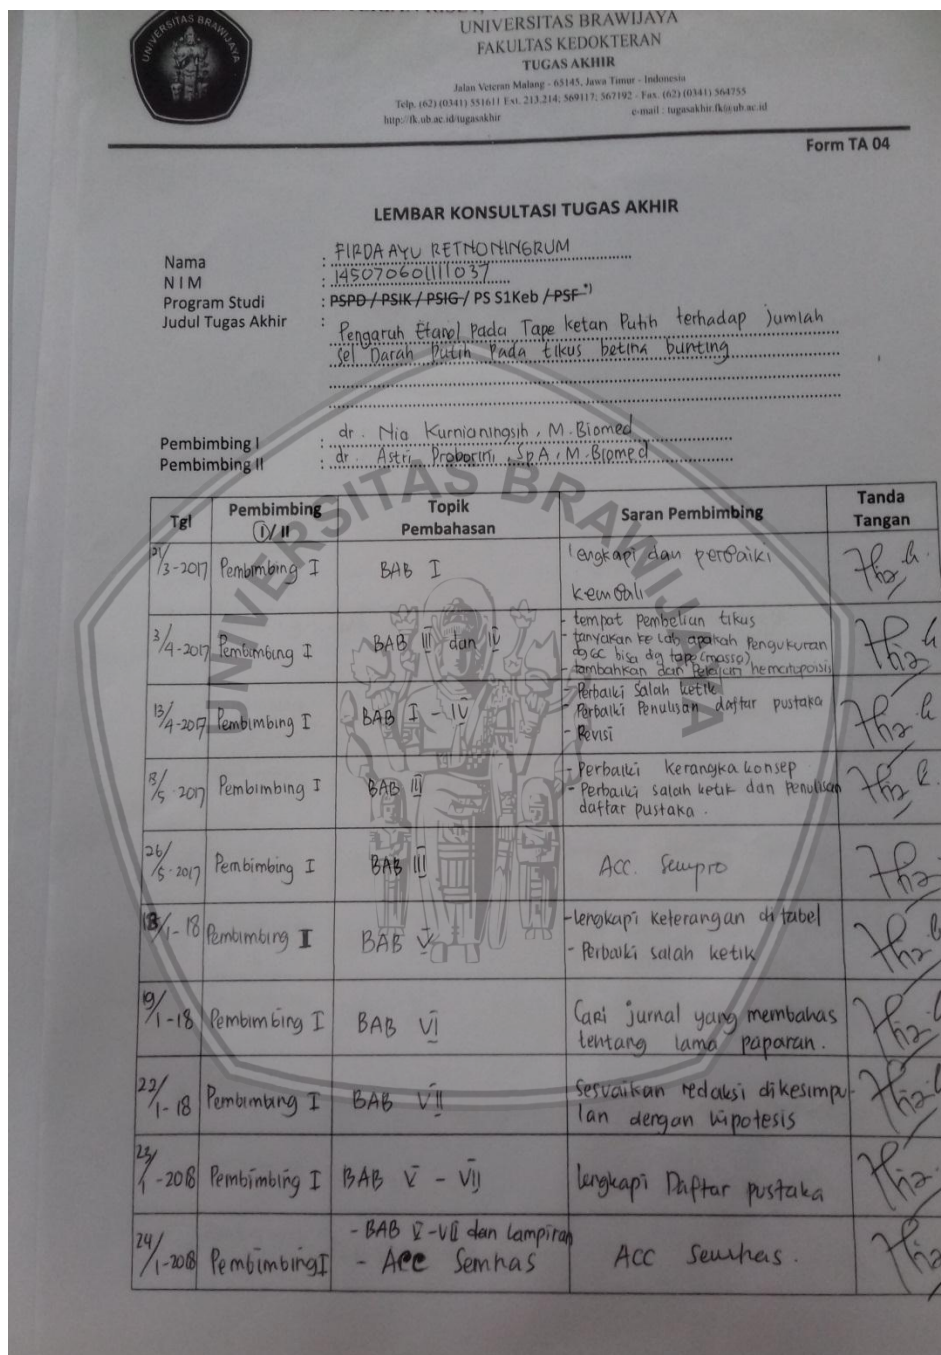 UNIVERSITAS BRAWIJAYA
UNIVERSITAS BRAWIJAYA
FAKULTAS KEDOKTERAN
TUGAS AKHIR
Jalan Veteran Malang - 65145, Jawa Timur - Indonesia
Telp. (62) (0341) 551611 Ext. 213.214; 569117; 567192 - Fax. (62) (0341) 564755
http://fk.ub.ac.id/tugasakhir e-mail : tugasakhir.fk@ub.ac.id
Form TA 04
LEMBAR KONSULTASI TUGAS AKHIR
Nama : FIRDA AYU RETNONINGRUM
NIM : 145070601111037
Program Studi : PSPD / PSIK / PSIG / PS S1Keb / PSF *)
Judul Tugas Akhir : Pengaruh Etanol Pada Tape Ketan Putih terhadap jumlah
sel Darah Putih Pada tikus betina bunting
Pembimbing I : dr. Nia Kurnianingsih, M.Biomed
Pembimbing II : dr. Astri Proborini, SpA, M.Biomed
UNIVERSITAS BRAWIJAYA
Tgl Pembimbing I/II Topik Pembahasan Saran Pembimbing Tanda Tangan
21/3-2017 Pembimbing I BAB I lengkapi dan perbaiki
kembali
3/4-2017 Pembimbing I BAB III dan IV - tempat pembelian tikus
- tanyakan ke lab apakah Pengukuran
dg GC bisa dg tape (massa)
- tambahkan dan hematopoisis
13/4-2017 Pembimbing I BAB I - IV - Perbaiki Salah ketik
- Perbaiki Penulisan daftar pustaka
- Revisi
/5-2017 Pembimbing I BAB III - Perbaiki kerangka konsep
- Perbaiki salah ketik dan Penulisan
daftar pustaka.
26/5-2017 Pembimbing I BAB III ACC. Sempro
18/1-18 Pembimbing I BAB V - lengkapi keterangan di tabel
- Perbaiki salah ketik
19/1-18 Pembimbing I BAB VI Cari jurnal yang membahas
tentang lama paparan.
22/1-18 Pembimbing I BAB VII Sesuaikan redaksi dikesimpu-
lan dengan hipotesis
23/1-2018 Pembimbing I BAB V - VII lengkapi Daftar pustaka
24/1-2018 Pembimbing I - BAB V-VII dan lampiran
- Acc Semhas ACC Semhas.